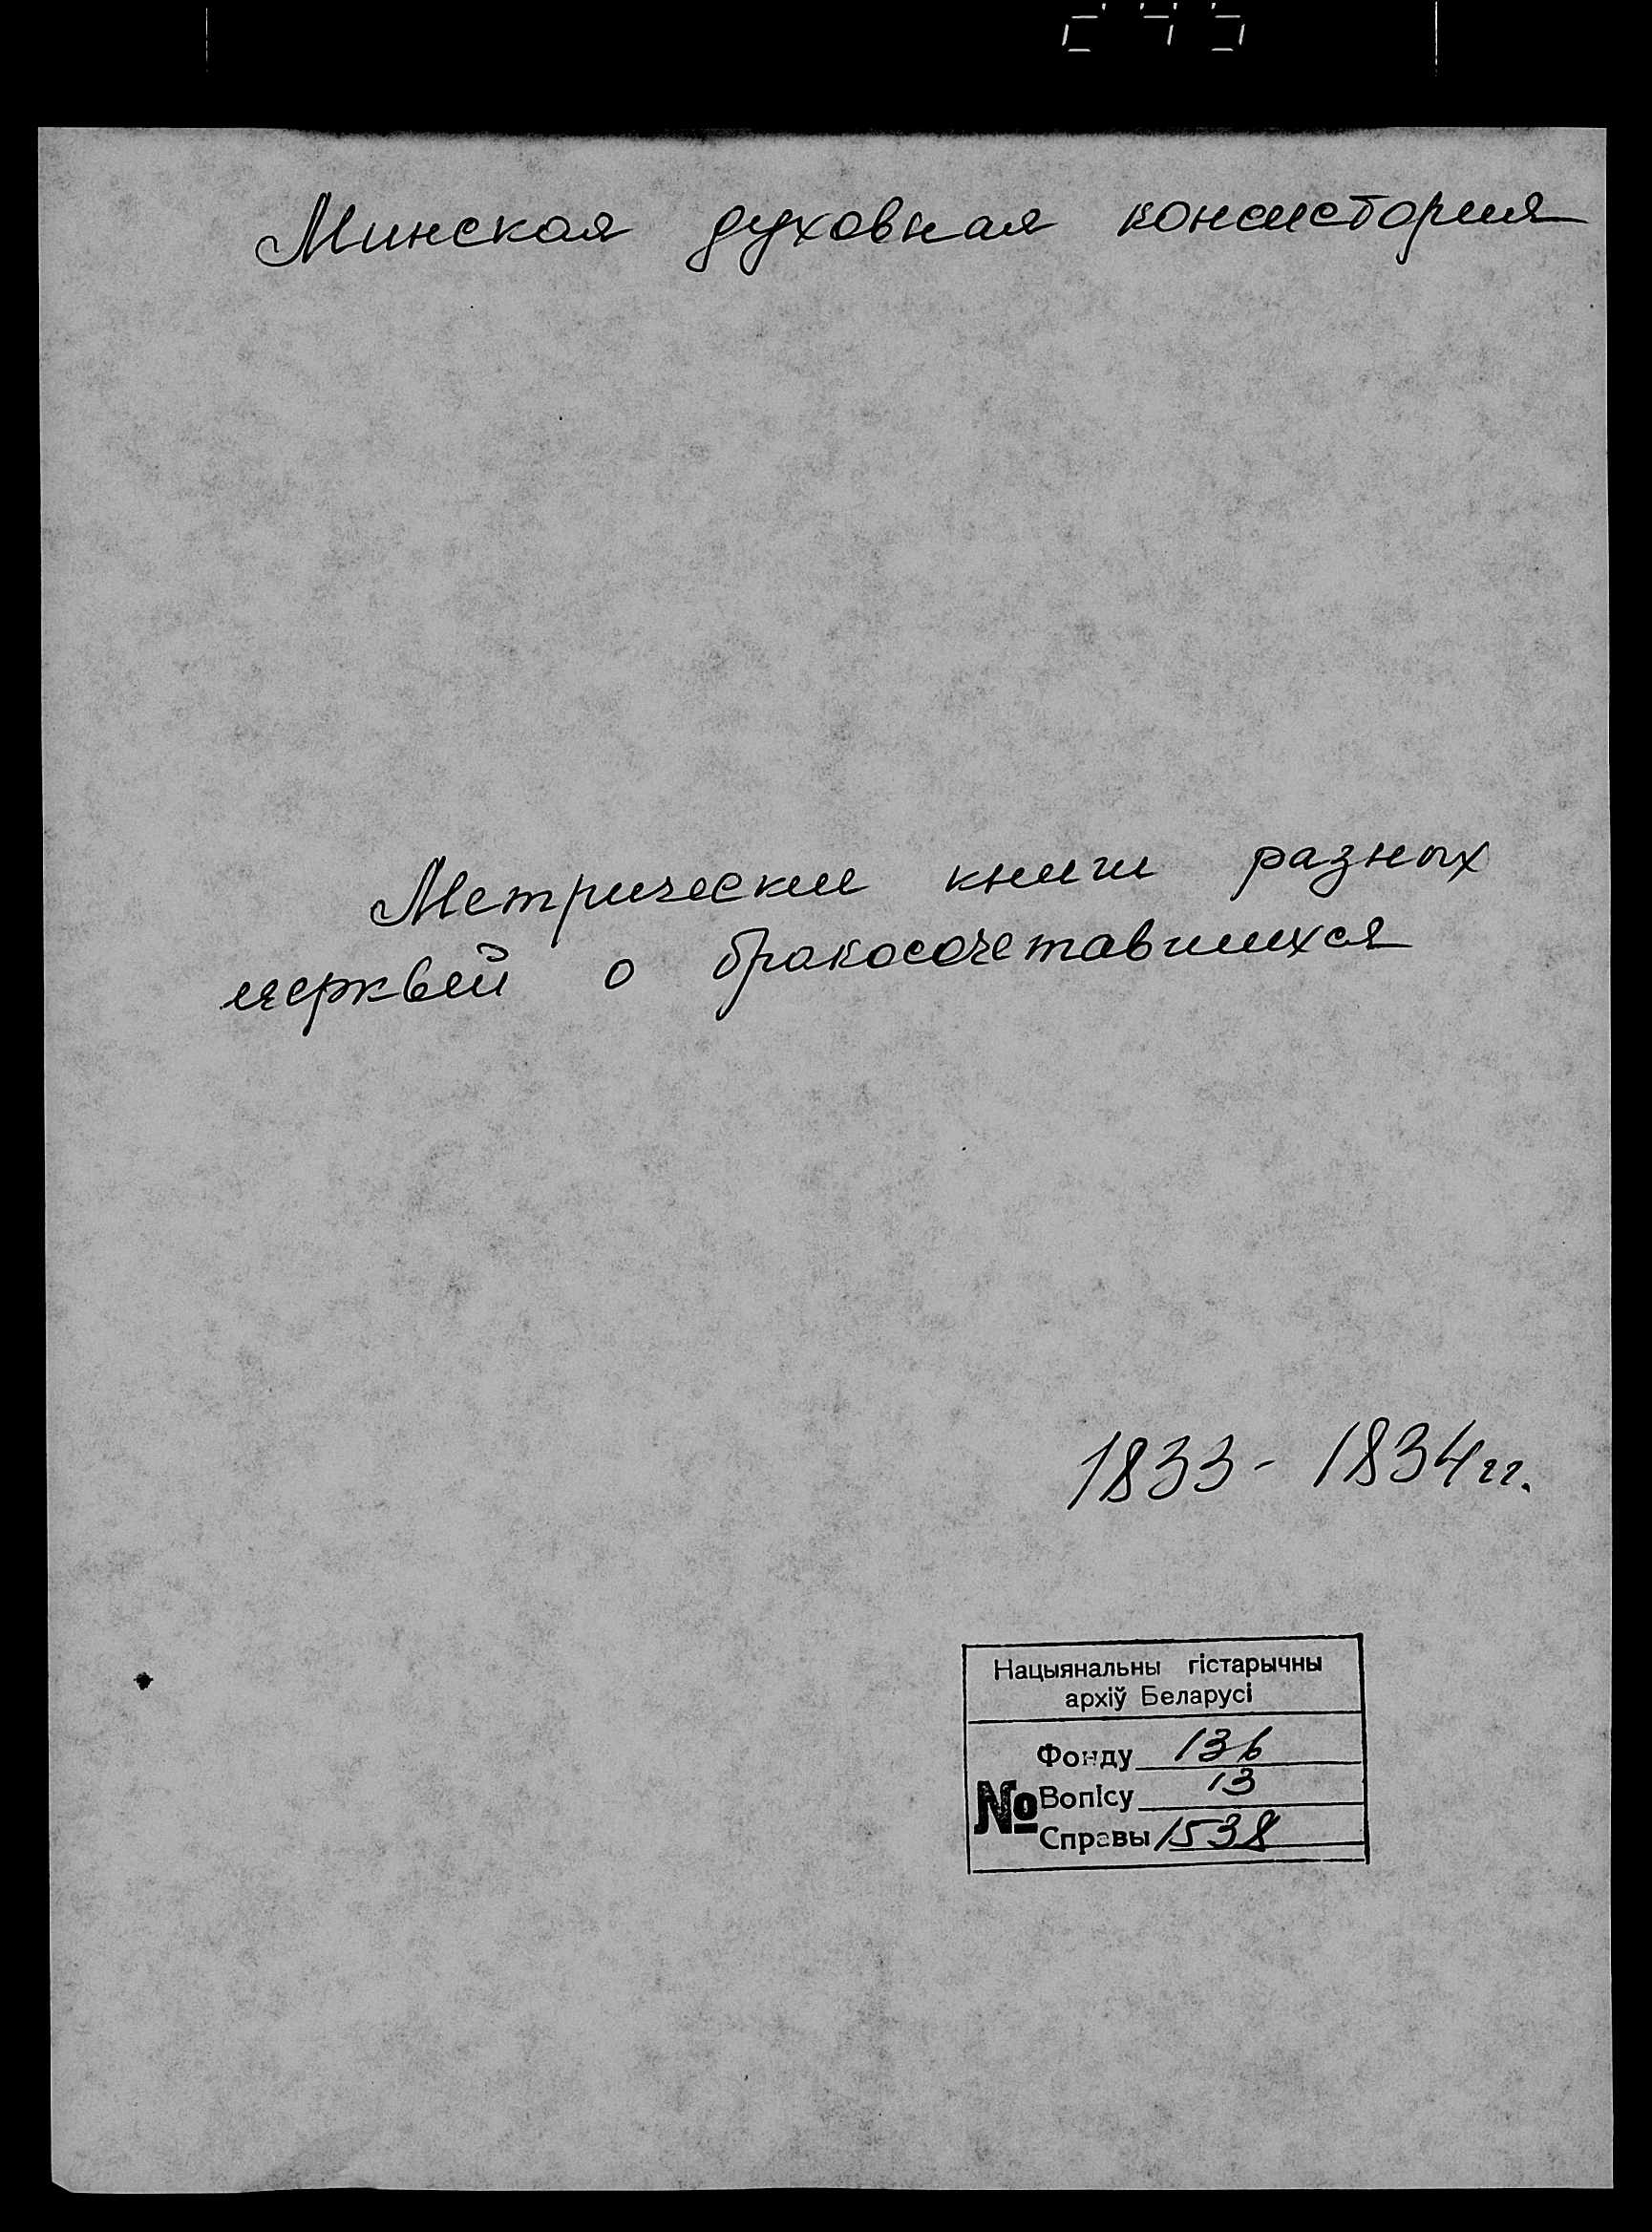 Минская духовная консистория
Метрически книги разных
церквей о бракосочетавшихся
1833 - 1834 гг.
Нацыянальны гістарычны
архіў Беларусі
Фонду 136
№ Вопісу 13
Справы 1538